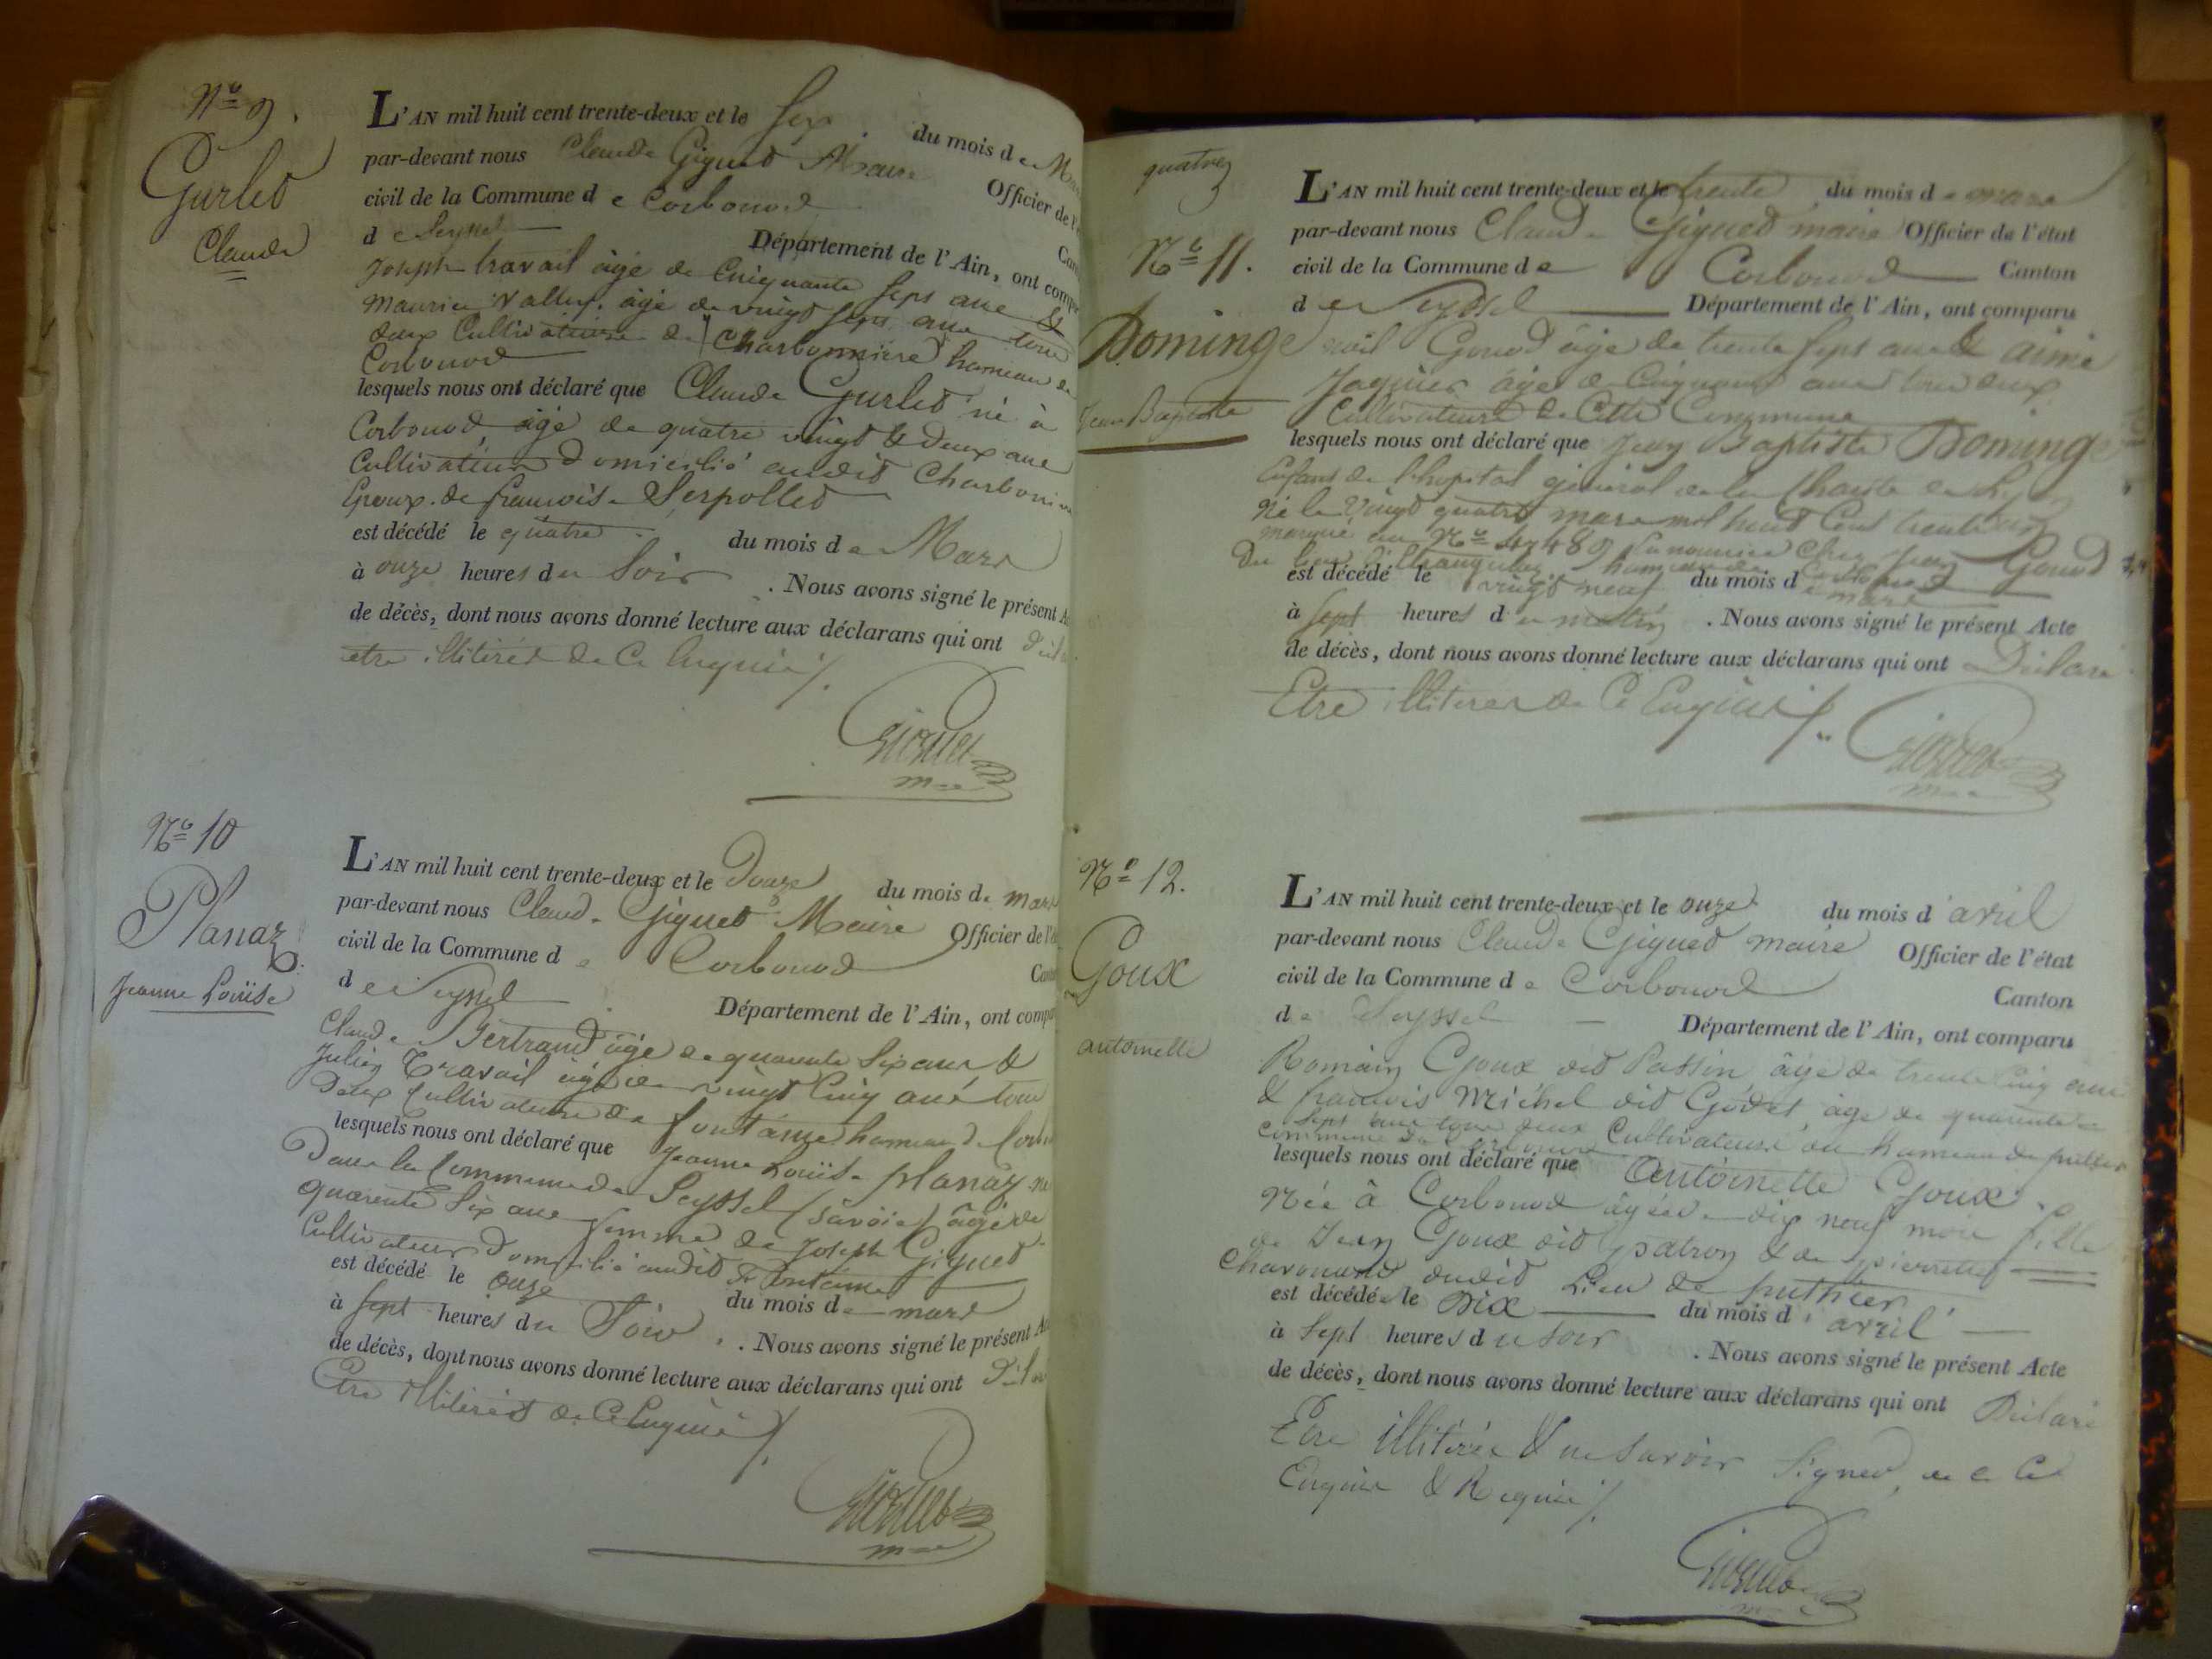 Nº 9.
Gurlet
Claude
L'AN mil huit cent trente-deux et le six du mois de Mars
par-devant nous Claude Giguet Maire Officier de l'
civil de la Commune de Corbonod Can
de Seyssel Département de l'Ain, ont comp
Joseph travail âgé de Cinquante Sept ans &
Maurice Vallet, âgé de vingt sept ans tous
deux Cultivateurs de Charbonnière hameau de
Corbonod
lesquels nous ont déclaré que Claude Gurlet né à
Corbonod, âgé de quatre vingt & deux ans
Cultivateur Domicilié audit Charbonni
Epoux de francoise Serpollet
est décédé le quatre du mois de Mars
à onze heures du Soir . Nous avons signé le présent A
de décès, dont nous avons donné lecture aux déclarans qui ont
etre illitérés de Ce Enquis /.
Giguet
Nº 10
Planaz
Jeanne Louise
L'AN mil huit cent trente-deux et le Douze du mois de mars
par-devant nous Claude Giguet Maire Officier de l'
civil de la Commune de Corbonod Can
de Seyssel Département de l'Ain, ont comp
Claude Bertrand âgé de quarante Six ans &
Julien Travail âgé de vingt Cinq ans tous
Deux Cultivateurs de fontaine hameau de Corb
lesquels nous ont déclaré que Jeanne Louise planaz née
Dans la Commune de Seyssel (Savoie) âgée de
quarente Six ans femme de Joseph Giguet
Cultivateur Domicilié audit Fontaine
est décédé le onze du mois de mars
à sept heures du Soir . Nous avons signé le présent A
de décès, dont nous avons donné lecture aux déclarans qui ont
Etre illitérés de Ce Enquis /.
Giguet
quatre
Nº 11.
Dominge
Jean Baptiste
L'AN mil huit cent trente-deux et le trente du mois de mars
par-devant nous Claude Giguet maire Officier de l'état
civil de la Commune de Corbonod Canton
de Seyssel Département de l'Ain, ont comparu
Gonod âgé de trente Sept ans & aimé
Jaquier âgé de Cinquante ans tous deux
Cultivateurs de Cette Commune
lesquels nous ont déclaré que Jean Baptiste Dominge
Enfant de l'hopital général de la Charité de Lyon
Né le Vingt quatre mars mil huit Cent trente
marqué au Nº en nourrice Chez Jean Gonod
Du lieu hameau de Corbonod
est décédé le vingt neuf du mois de mars
à Sept heures du matin . Nous avons signé le présent Acte
de décès, dont nous avons donné lecture aux déclarans qui ont Déclaré
Etre illiteres de Ce Enquis /.
Giguet
Nº 12.
Goux
antoinette
L'AN mil huit cent trente-deux et le onze du mois d'avril
par-devant nous Claude Giguet maire Officier de l'état
civil de la Commune de Corbonod Canton
de Seyssel Département de l'Ain, ont comparu
Romain Goux dit Passin âgé de trente Cinq ans
& francois Michel dit Godet, âgé de quarante
Sept ans tous deux Cultivateurs au hameau de puthier
commune de Corbonod
lesquels nous ont déclaré que Antoinette Goux
Née à Corbonod âgée de dix neuf mois fille
de Jean Goux dit patron & de pierrette
Charvound audit Lieu de puthier
est décédée le Dix du mois d'avril
à Sept heures du Soir . Nous avons signé le présent Acte
de décès, dont nous avons donné lecture aux déclarans qui ont Déclaré
Etre illitérés & ne Savoir Signer, de Ce
Enquis & Requis /.
Giguet